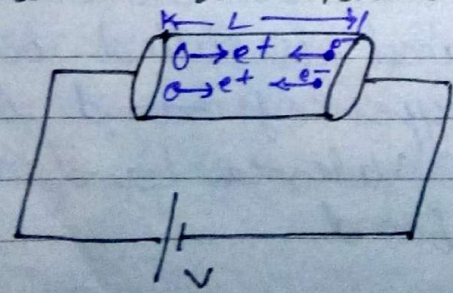 L
e+ e-
e+ e-
V